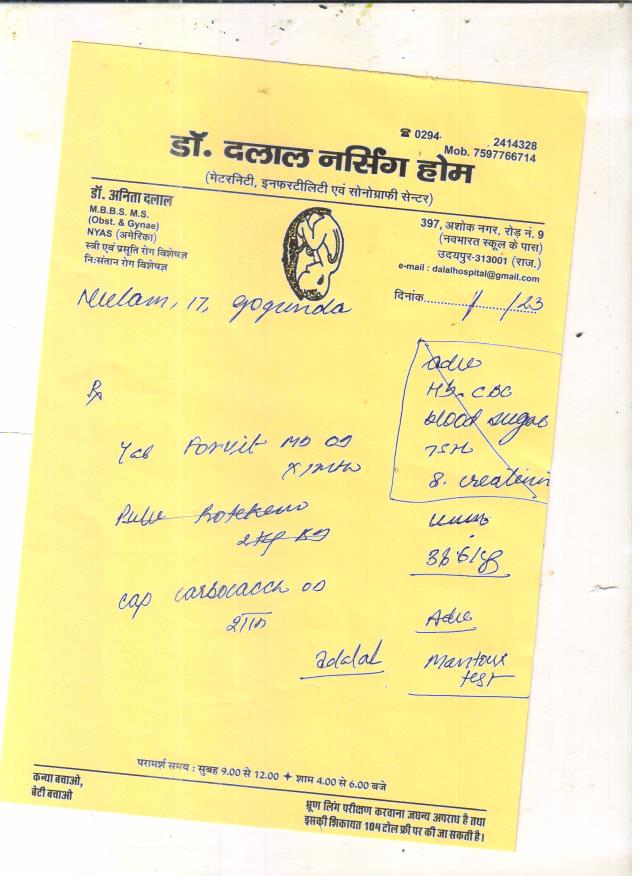 ☎ 0294- 2414328
Mob. 7597766714
डॉ. दलाल नर्सिंग होम
(मेटरनिटी, इनफरटीलिटी एवं सोनोग्राफी सेन्टर)
डॉ. अनिता दलाल
M.B.B.S. M.S.
(Obst. & Gynae)
NYAS (अमेरिका)
स्त्री एवं प्रसूति रोग विशेषज्ञ
नि:संतान रोग विशेषज्ञ
397, अशोक नगर, रोड़ नं. 9
(नवभारत स्कूल के पास)
उदयपुर-313001 (राज.)
e-mail : dalalhospital@gmail.com
दिनांक / /23
Neelam, 17, gogunda
Adv
Hb. CBC
blood sugar
TSH
S. creatinin
Rx
Tab OD
cap OD
36.6 kg
Adv
Mantoux
test
adalal
परामर्श समय : सुबह 9.00 से 12.00 ✦ शाम 4.00 से 6.00 बजे
कन्या बचाओ,
बेटी बचाओ
भ्रूण लिंग परीक्षण करवाना जघन्य अपराध है तथा
इसकी शिकायत 104 टोल फ्री पर की जा सकती है।